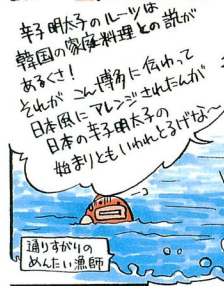 辛子明太子のルーツは
韓国の家庭料理との説が
あるくさ!
それが こん博多に伝わって
日本風にアレンジされたんが
日本の辛子明太子の
始まりともいわれとるげな〜
通りすがりの
めんたい漁師